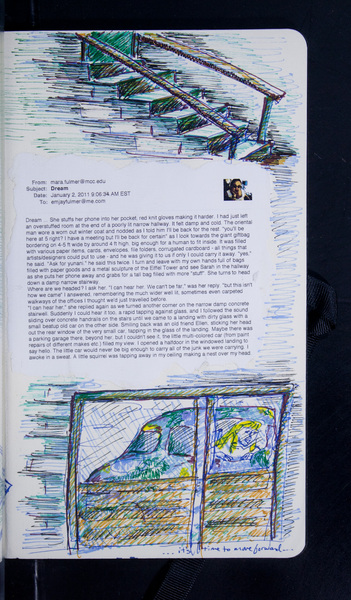 From: mara.fulmer@mcc.edu
Subject: Dream
Date: January 2, 2011 9:06:34 AM EST
To: emjayfulmer@me.com
Dream ... She stuffs her phone into her pocket, red knit gloves making it harder. I had just left
an overstuffed room at the end of a poorly lit narrow hallway. It felt damp and cold. The oriental
man wore a worn out winter coat and nodded as I told him I'll be back for the rest. "you'll be
here at 5 right? I have a meeting but I'll be back for certain" as I look towards the giant giftbag
bordering on 4-5 ft wide by around 4 ft high, big enough for a human to fit inside. It was filled
with various paper items, cards, envelopes, file folders, corrugated cardboard - all things that
artists/designers could put to use - and he was giving it to us if only I could carry it away. "yes,"
he said. "Ask for yunan." he said this twice. I turn and leave with my own hands full of bags
filled with paper goods and a metal sculpture of the Eiffel Tower and see Sarah in the hallway
as she puts her phone away and grabs for a tall bag filled with more "stuff". She turns to head
down a damp narrow stairway.
Where are we headed? I ask her, "I can hear her. We can't be far," was her reply. "but this isn't
how we came" I answered, remembering the much wider well lit, sometimes even carpeted
walkways of the offices I thought we'd just travelled before.
"I can hear her," she replied again as we turned another corner on the narrow damp concrete
stairwell. Suddenly I could hear it too, a rapid tapping against glass, and I followed the sound
sliding over handrails on the stairs until we came to a landing with dirty glass with a
small beatup old car on the other side. Smiling back was an old friend Ellen, sticking her head
out the rear window of the very small car, tapping in the glass of the landing. Maybe there was
a parking garage there, beyond her, but I couldn't see it, the little multi-colored car (from paint
repairs of different makes etc.) filled my view. I opened a halfdoor in the windowed landing to
say hello. The little car would never be big enough to carry all of the junk we were carrying. I
awoke in a sweat. A little squirrel was tapping away in my ceiling making a nest over my head.
.... it's time to move forward....